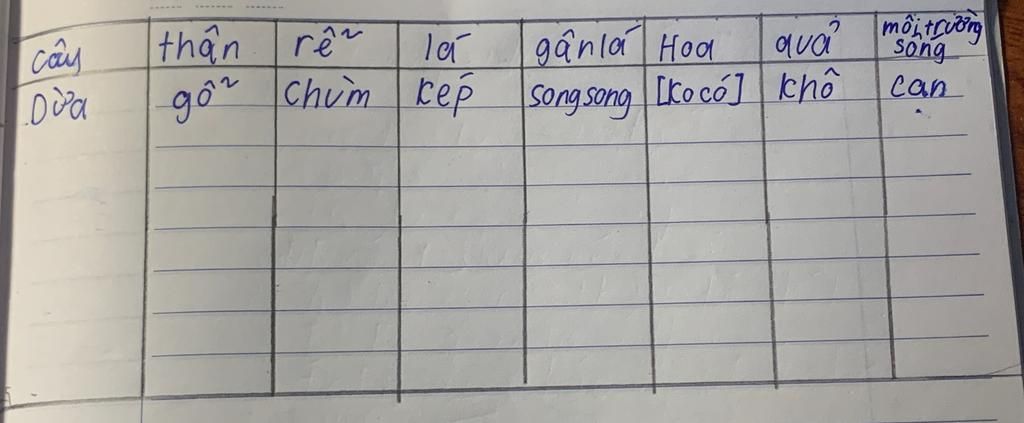 cây thận rễ lá gânlá Hoa quả môi trường
sống
Dừa gỗ chùm kép songsong [ko có] khô cạn